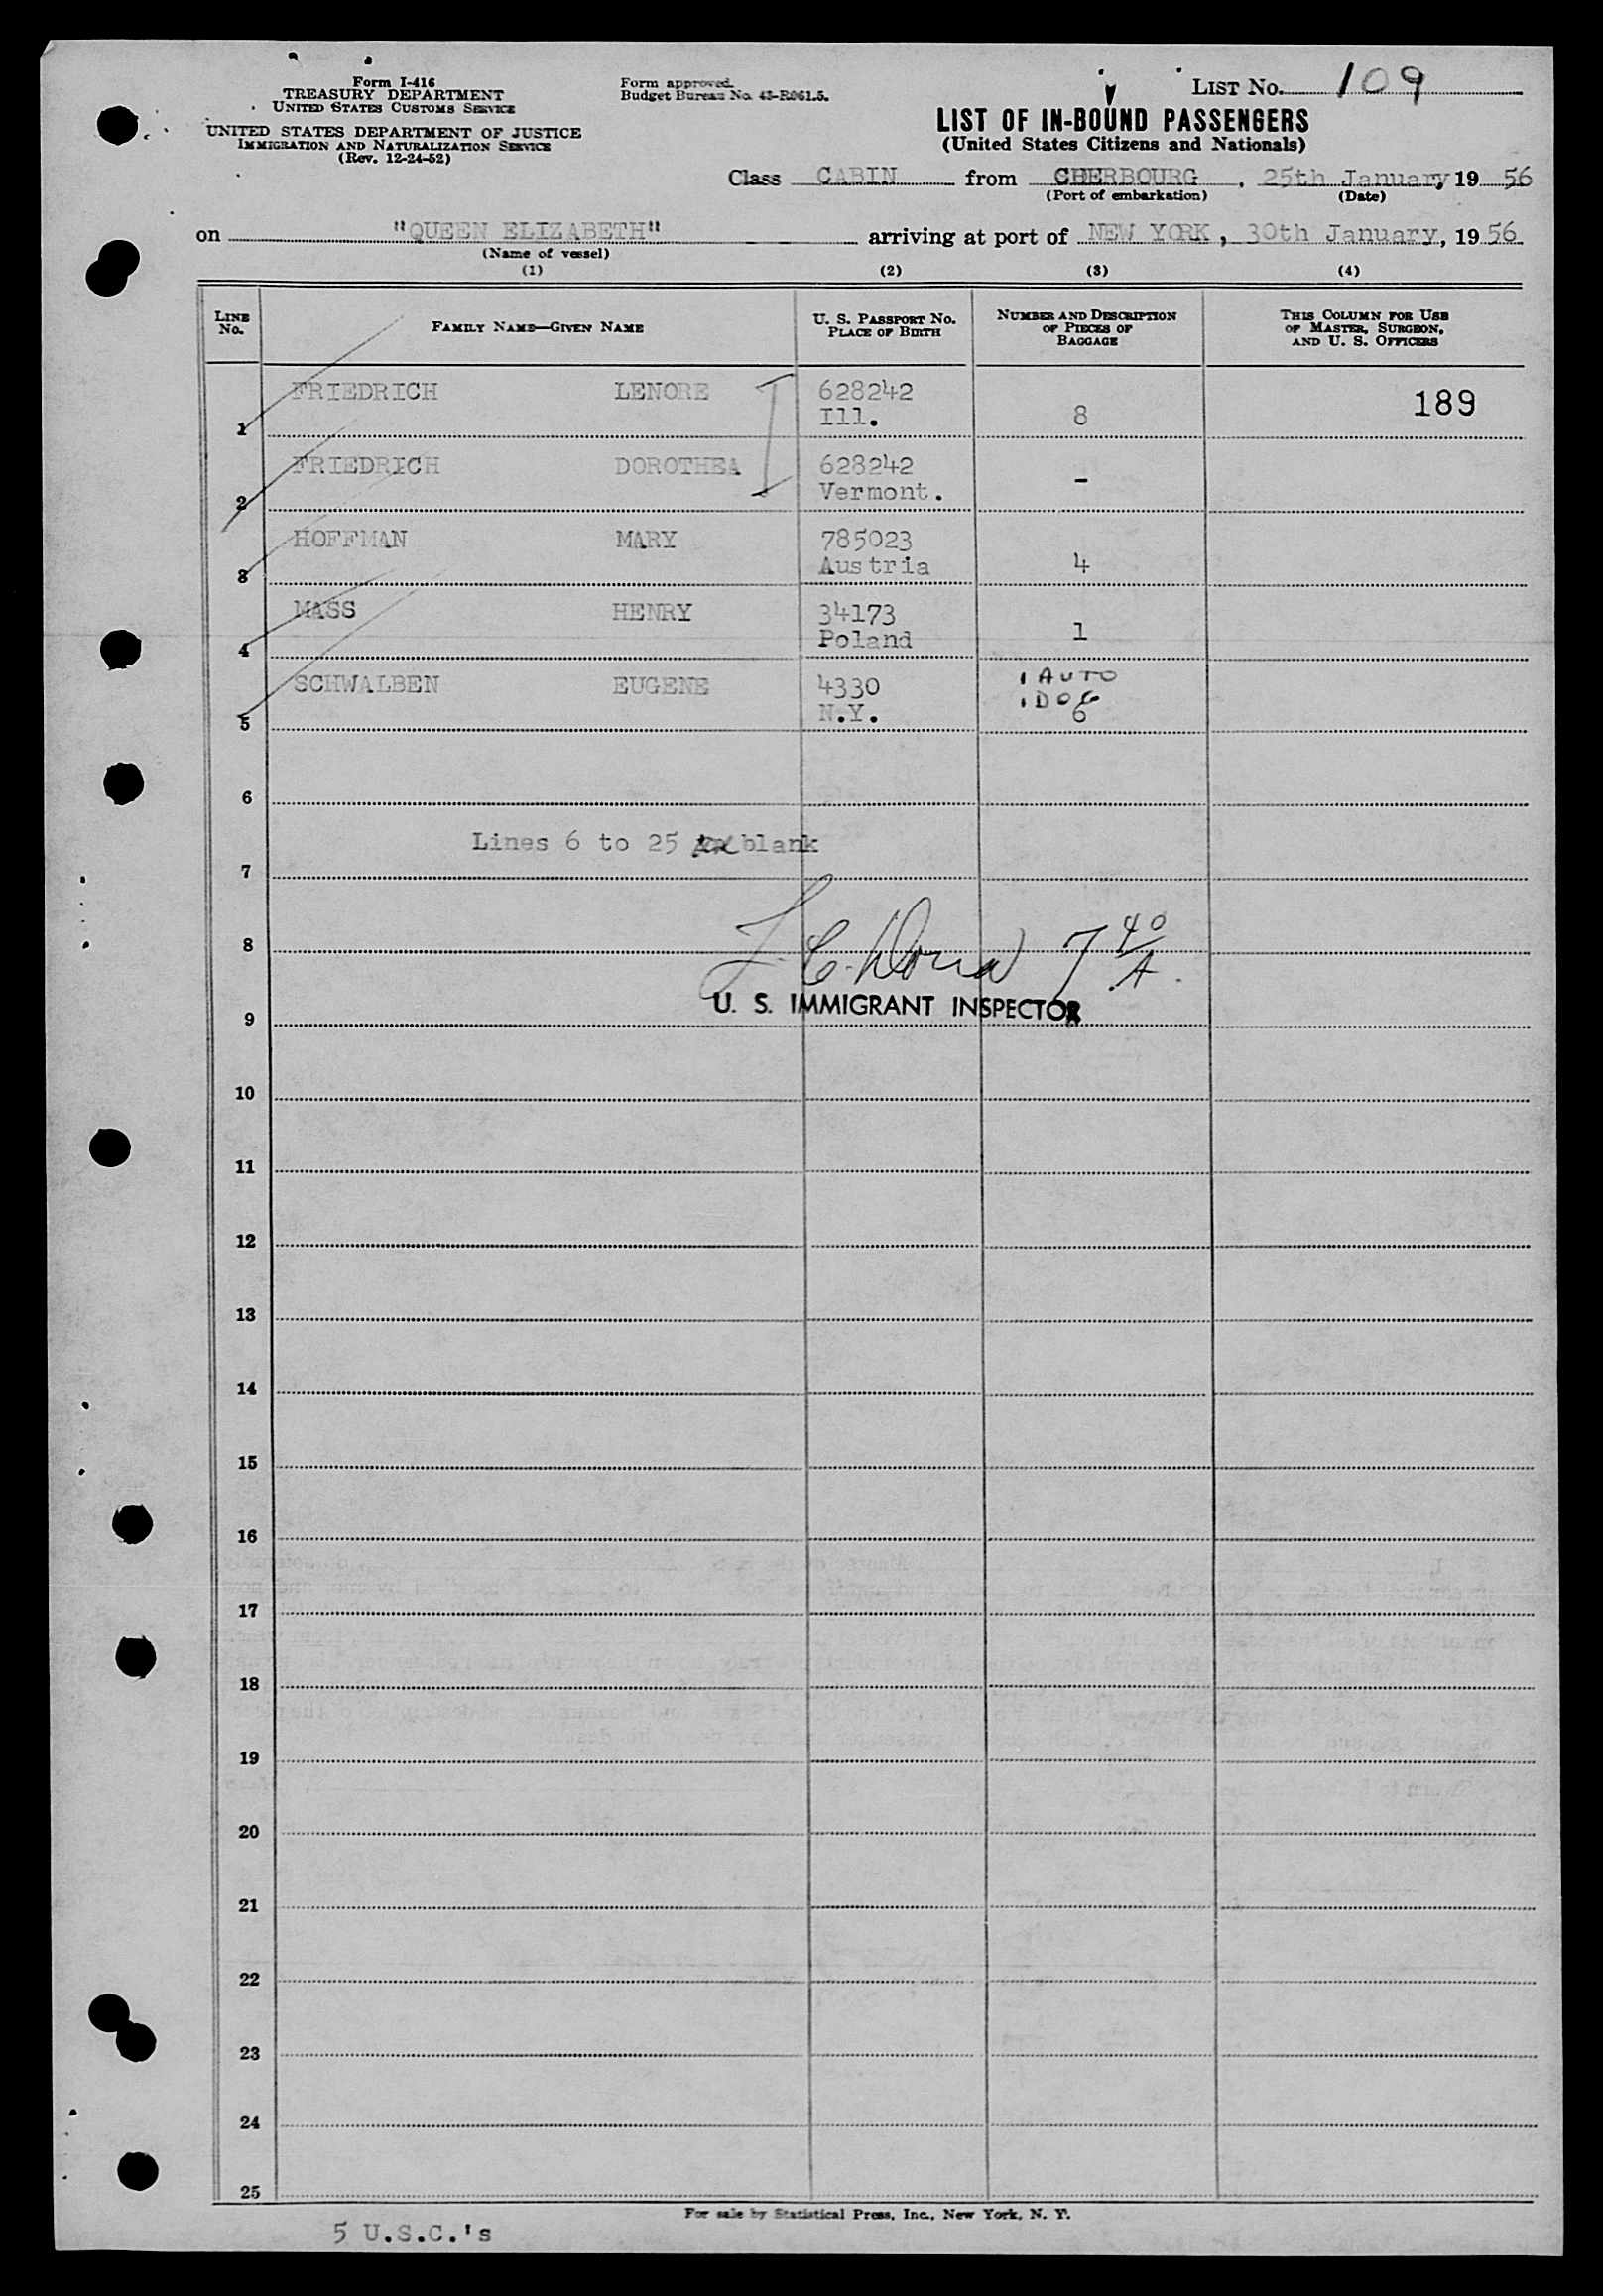 Form I-416
TREASURY DEPARTMENT
UNITED STATES CUSTOMS SERVICE
UNITED STATES DEPARTMENT OF JUSTICE
IMMIGRATION AND NATURALIZATION SERVICE
(Rev. 12-24-52)
Form approved.
Budget Bureau No. 43-R061.5.
LIST No. 109
LIST OF IN-BOUND PASSENGERS
(United States Citizens and Nationals)
Class CABIN from CHERBOURG, 25th January, 19 56
(Port of embarkation) (Date)
on "QUEEN ELIZABETH" arriving at port of NEW YORK, 30th January, 19 56
(Name of vessel)
(1) (2) (3) (4)
LINE No. FAMILY NAME—GIVEN NAME U. S. PASSPORT No. PLACE OF BIRTH NUMBER AND DESCRIPTION OF PIECES OF BAGGAGE THIS COLUMN FOR USE OF MASTER, SURGEON, AND U. S. OFFICERS
1 FRIEDRICH LENORE 628242 Ill. 8 189
2 FRIEDRICH DOROTHEA 628242 Vermont. -
3 HOFFMAN MARY 785023 Austria 4
4 MASS HENRY 34173 Poland 1
5 SCHWALBEN EUGENE 4330 N.Y. 1 AUTO 1 DOG 6
6
Lines 6 to 25 blank
7
8 7 40/A.
U. S. IMMIGRANT INSPECTOR
9
10
11
12
13
14
15
16
17
18
19
20
21
22
23
24
25
For sale by Statistical Press, Inc., New York, N. Y.
5 U.S.C.'s